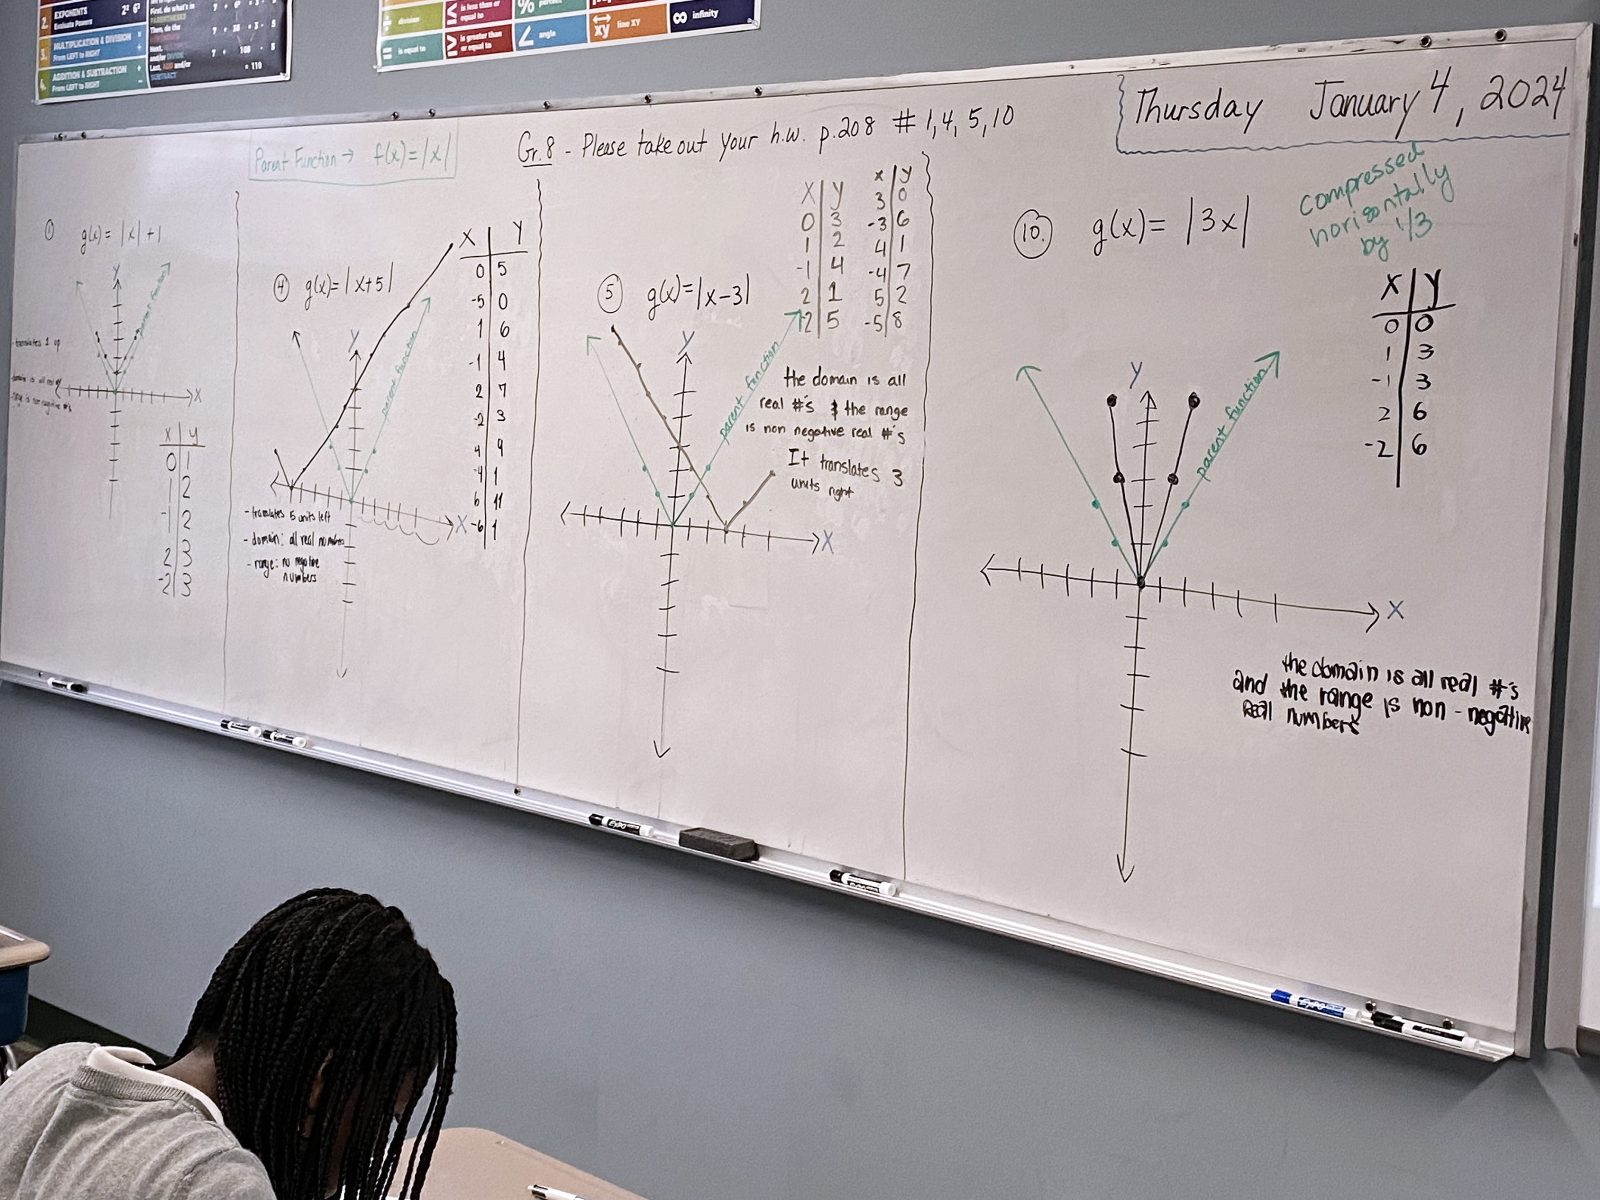 2. EXPONENTS
Evaluate Powers
3. MULTIPLICATION & DIVISION
From LEFT to RIGHT
4. ADDITION & SUBTRACTION
From LEFT to RIGHT
First, do what's in
PARENTHESES
Then, do the
Next,
and/or
Last, ADD and/or
SUBTRACT
= 110
division
is equal to
is less than or
equal to
is greater than
or equal to
percent
angle
line XY
infinity
Thursday January 4, 2024
Gr. 8 - Please take out your h.w. p.208 # 1, 4, 5, 10
Parent Function → f(x)=|x|
①
g(x)= |x|+1
Y
parent function
- translates 1 up
X
X Y
0 1
1 2
-1 2
2 3
-2 3
④ g(x)=|x+5|
Y
parent function
X
- translates 5 units left
- domain: all real numbers
- range: no negative
numbers
X Y
0 5
-5 0
1 6
-1 4
2 7
-2 3
4 9
-4 1
6 11
-6 1
⑤ g(x)=|x-3|
Y
parent function
X
X Y
0 3
1 2
-1 4
2 1
-2 5
x y
3 0
-3 6
4 1
-4 7
5 2
-5 8
the domain is all
real #'s & the range
is non negative real #'s
It translates 3
units right
⑩ g(x)= |3x|
compressed
horizontally
by 1/3
Y
parent function
X
X Y
0 0
1 3
-1 3
2 6
-2 6
the domain is all real #'s
and the range is non-negative
real numbers
EXPO
EXPO